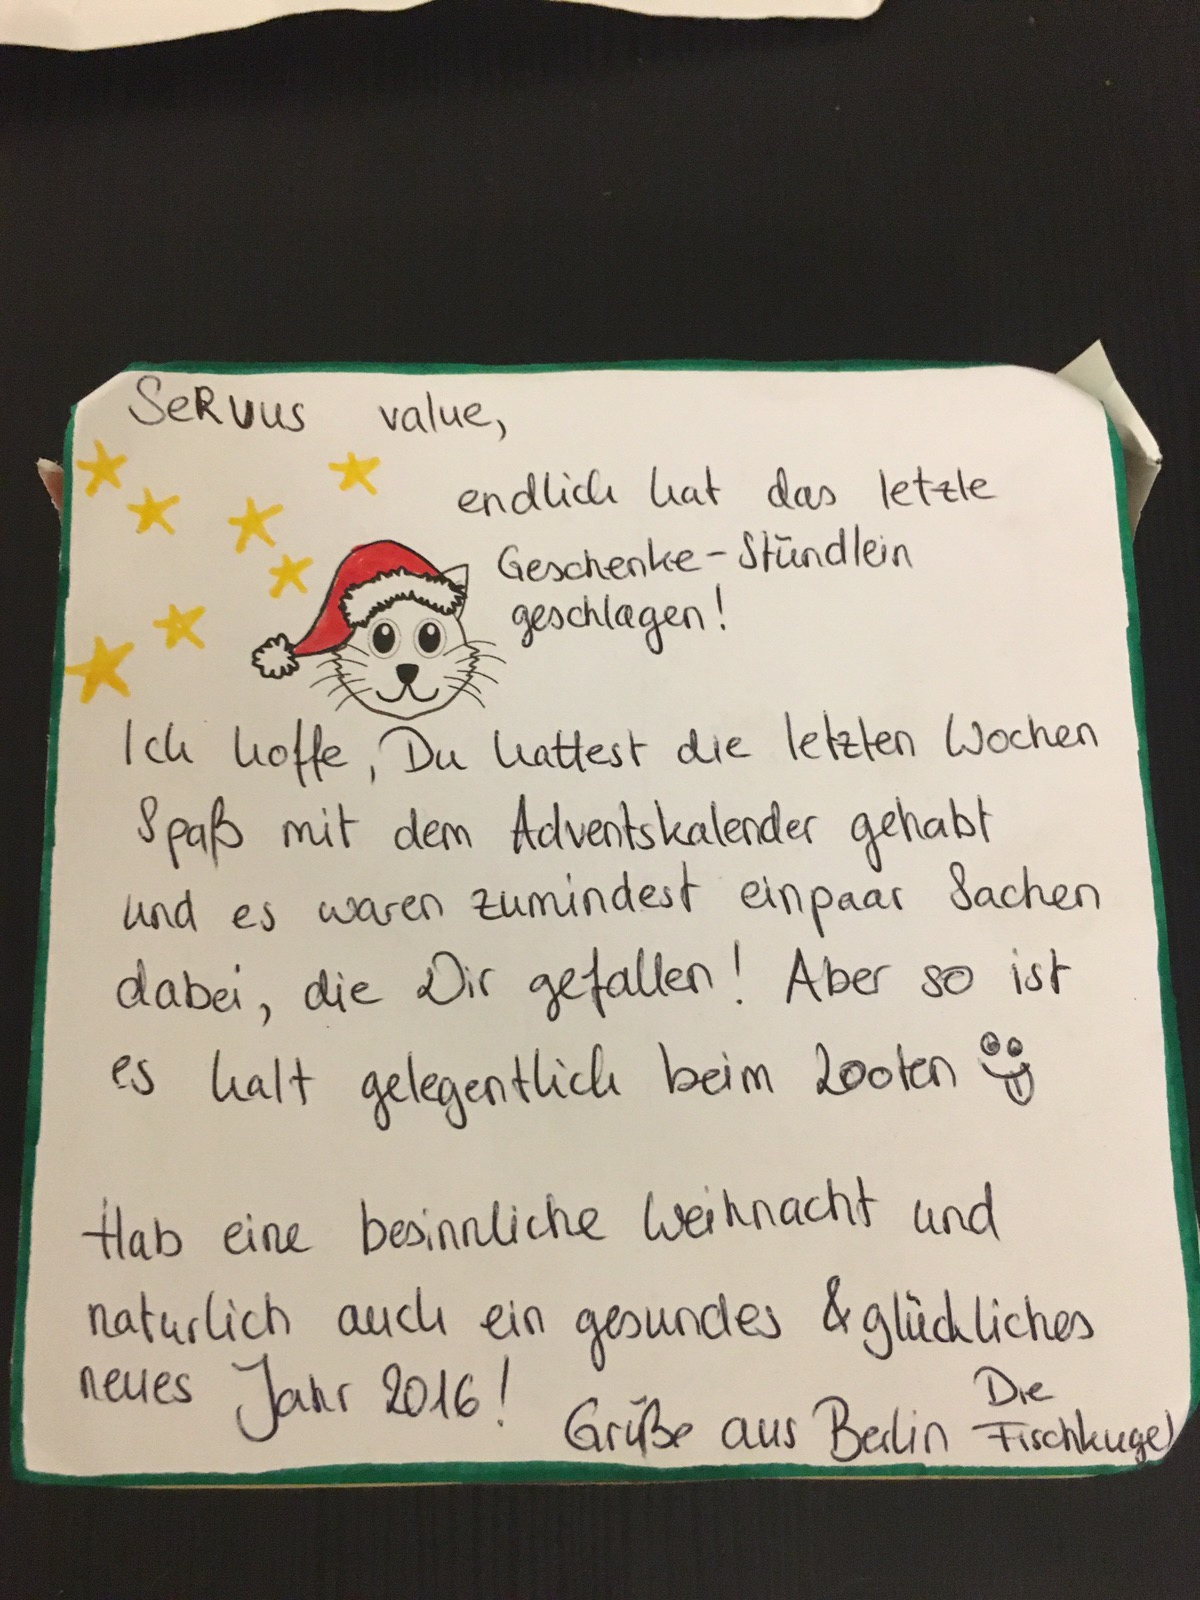 Servus value,
endlich hat das letzte
Geschenke-Stündlein
geschlagen!
Ich hoffe, Du hattest die letzten Wochen
Spaß mit dem Adventskalender gehabt
und es waren zumindest einpaar Sachen
dabei, die Dir gefallen! Aber so ist
es halt gelegentlich beim Looten
Hab eine besinnliche Weihnacht und
naturlich auch ein gesundes & glückliches
neues Jahr 2016!
Grüße aus Berlin Die
Fischkugel